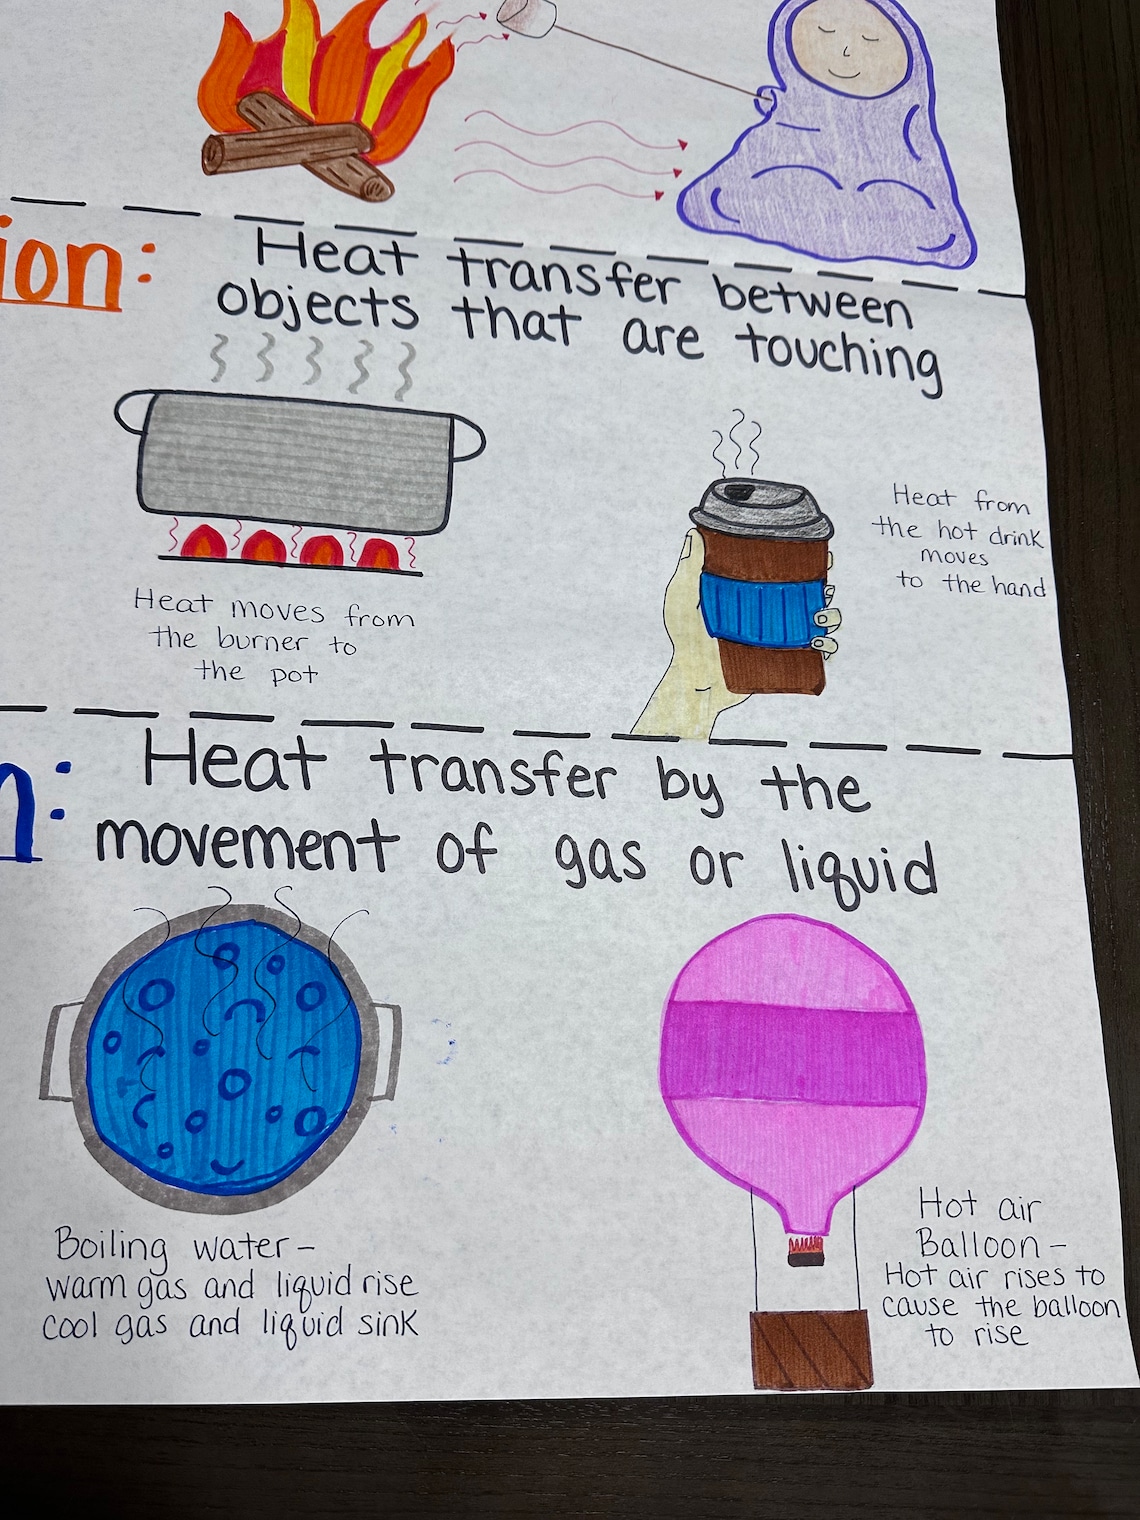 ion:
Heat transfer between
objects that are touching
Heat moves from
the burner to
the pot
Heat from
the hot drink
moves
to the hand
n:
Heat transfer by the
movement of gas or liquid
Boiling water-
warm gas and liquid rise
cool gas and liquid sink
Hot air
Balloon-
Hot air rises to
cause the balloon
to rise